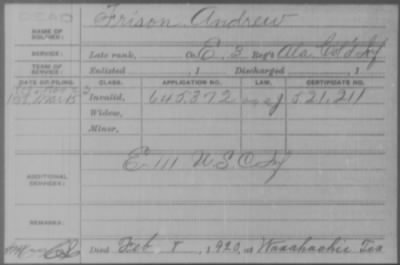 DEAD
NAME OF SOLDIER: Frison, Andrew
SERVICE: Late rank, Co. E, 3 Reg't Ala. Col'd Inf
TERM OF SERVICE: Enlisted , 1 Discharged , 1
DATE OF FILING. CLASS. APPLICATION NO. LAW. CERTIFICATE NO.
Invalid, 645,372 521,211
Widow,
Minor,
ADDITIONAL SERVICES: E 111 U.S.C. Inf
REMARKS:
Died Feb 8, 1920, at Waxahachie Tex